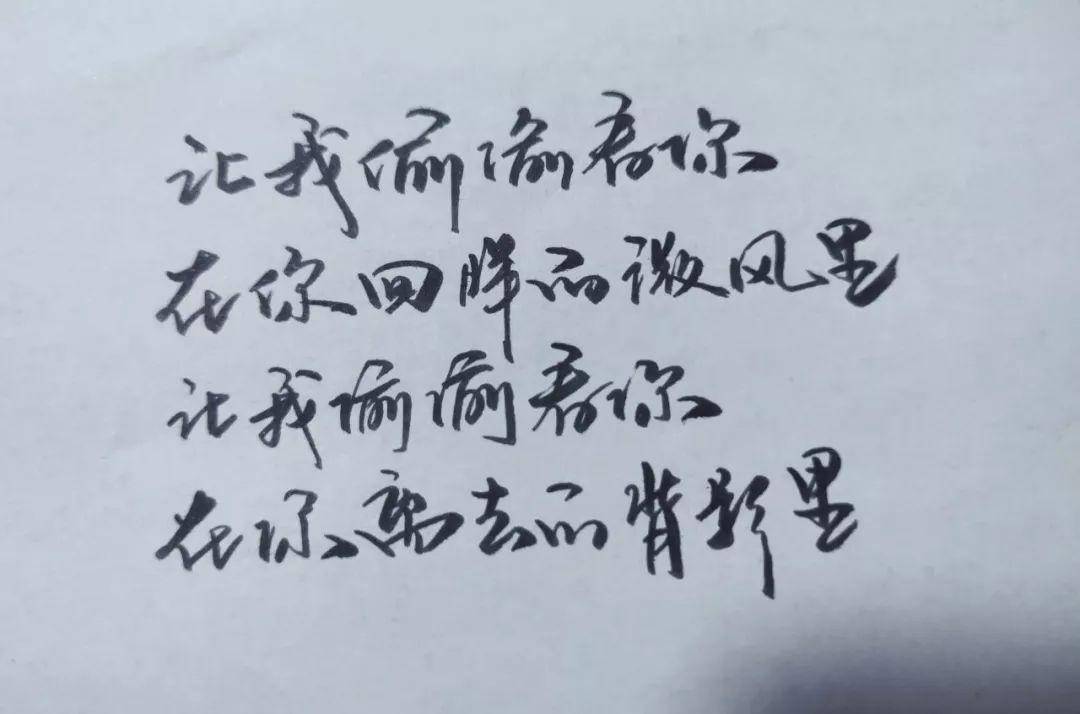 让我偷偷看你
在你回眸的微风里
让我偷偷看你
在你离去的背影里